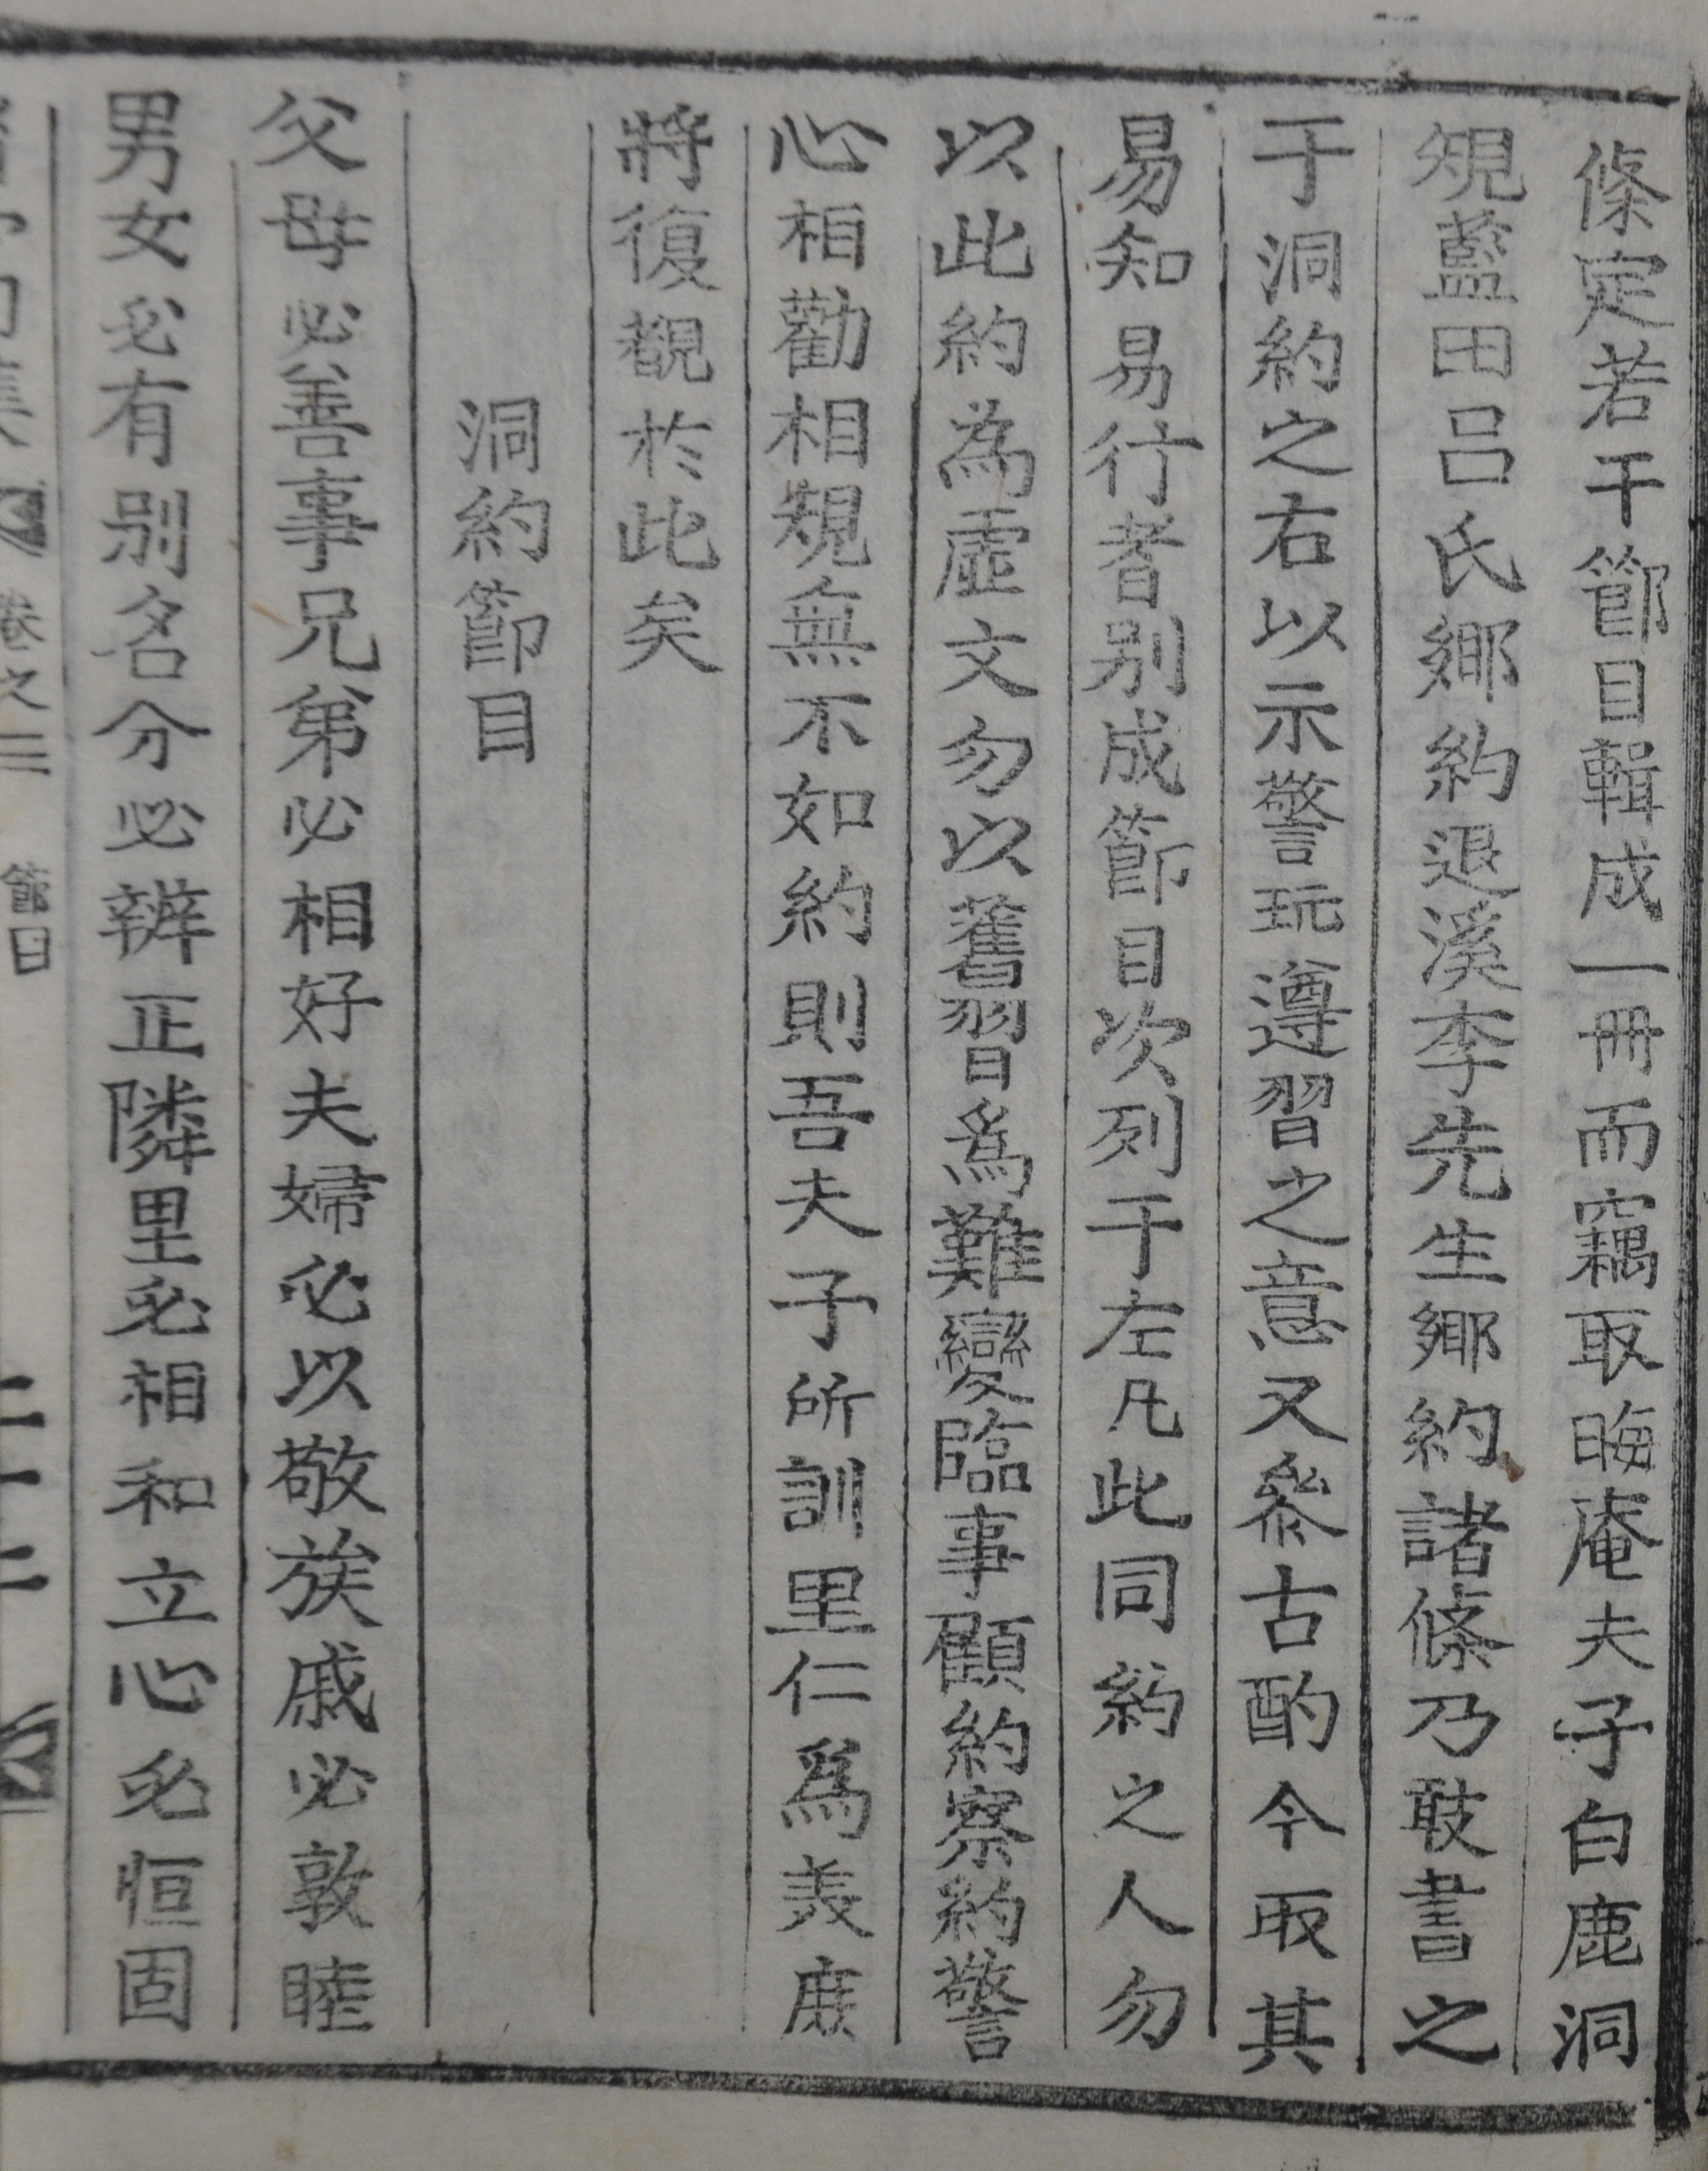 條定若干節目輯成一冊而竊取晦庵夫子白鹿洞
規藍田呂氏鄉約退溪李先生鄉約諸條乃敢書之
于洞約之右以示警玩遵習之意又參古酌今取其
易知易行者別成節目次列于左凡此同約之人勿
以此約為虛文勿以舊習爲難變臨事顧約察約警
心相勸相規無不如約則吾夫子所訓里仁爲美庶
將復覩於此矣
洞約節目
父母必善事兄弟必相好夫婦必以敬族戚必敦睦
男女必有別名分必辨正隣里必相和立心必恒固
卷之三 節目 二十二